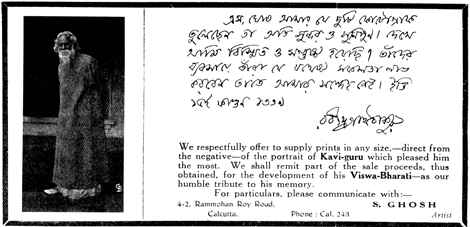 এস, ঘোষ আমার যে দুটি ফোটোগ্রাফ
তুলেছেন তা অতি সুন্দর ও সুনিপুণ। দেখে
আমি বিস্মিত ও সন্তুষ্ট হয়েছি। তাঁদের
ব্যবসায়ে তাঁরা যে যথেষ্ট সফলতা লাভ
করবেন তাতে আমার সন্দেহ নেই। ইতি
We respectfully offer to supply prints in any size,—direct from
the negative—of the portrait of Kavi-guru which pleased him
the most. We shall remit part of the sale proceeds, thus
obtained, for the development of his Viswa-Bharati—as our
humble tribute to his memory.
For particulars, please communicate with:—
4-2, Rammohan Roy Road,
Calcutta.
Phone : Cal. 243
S. GHOSH
Artist